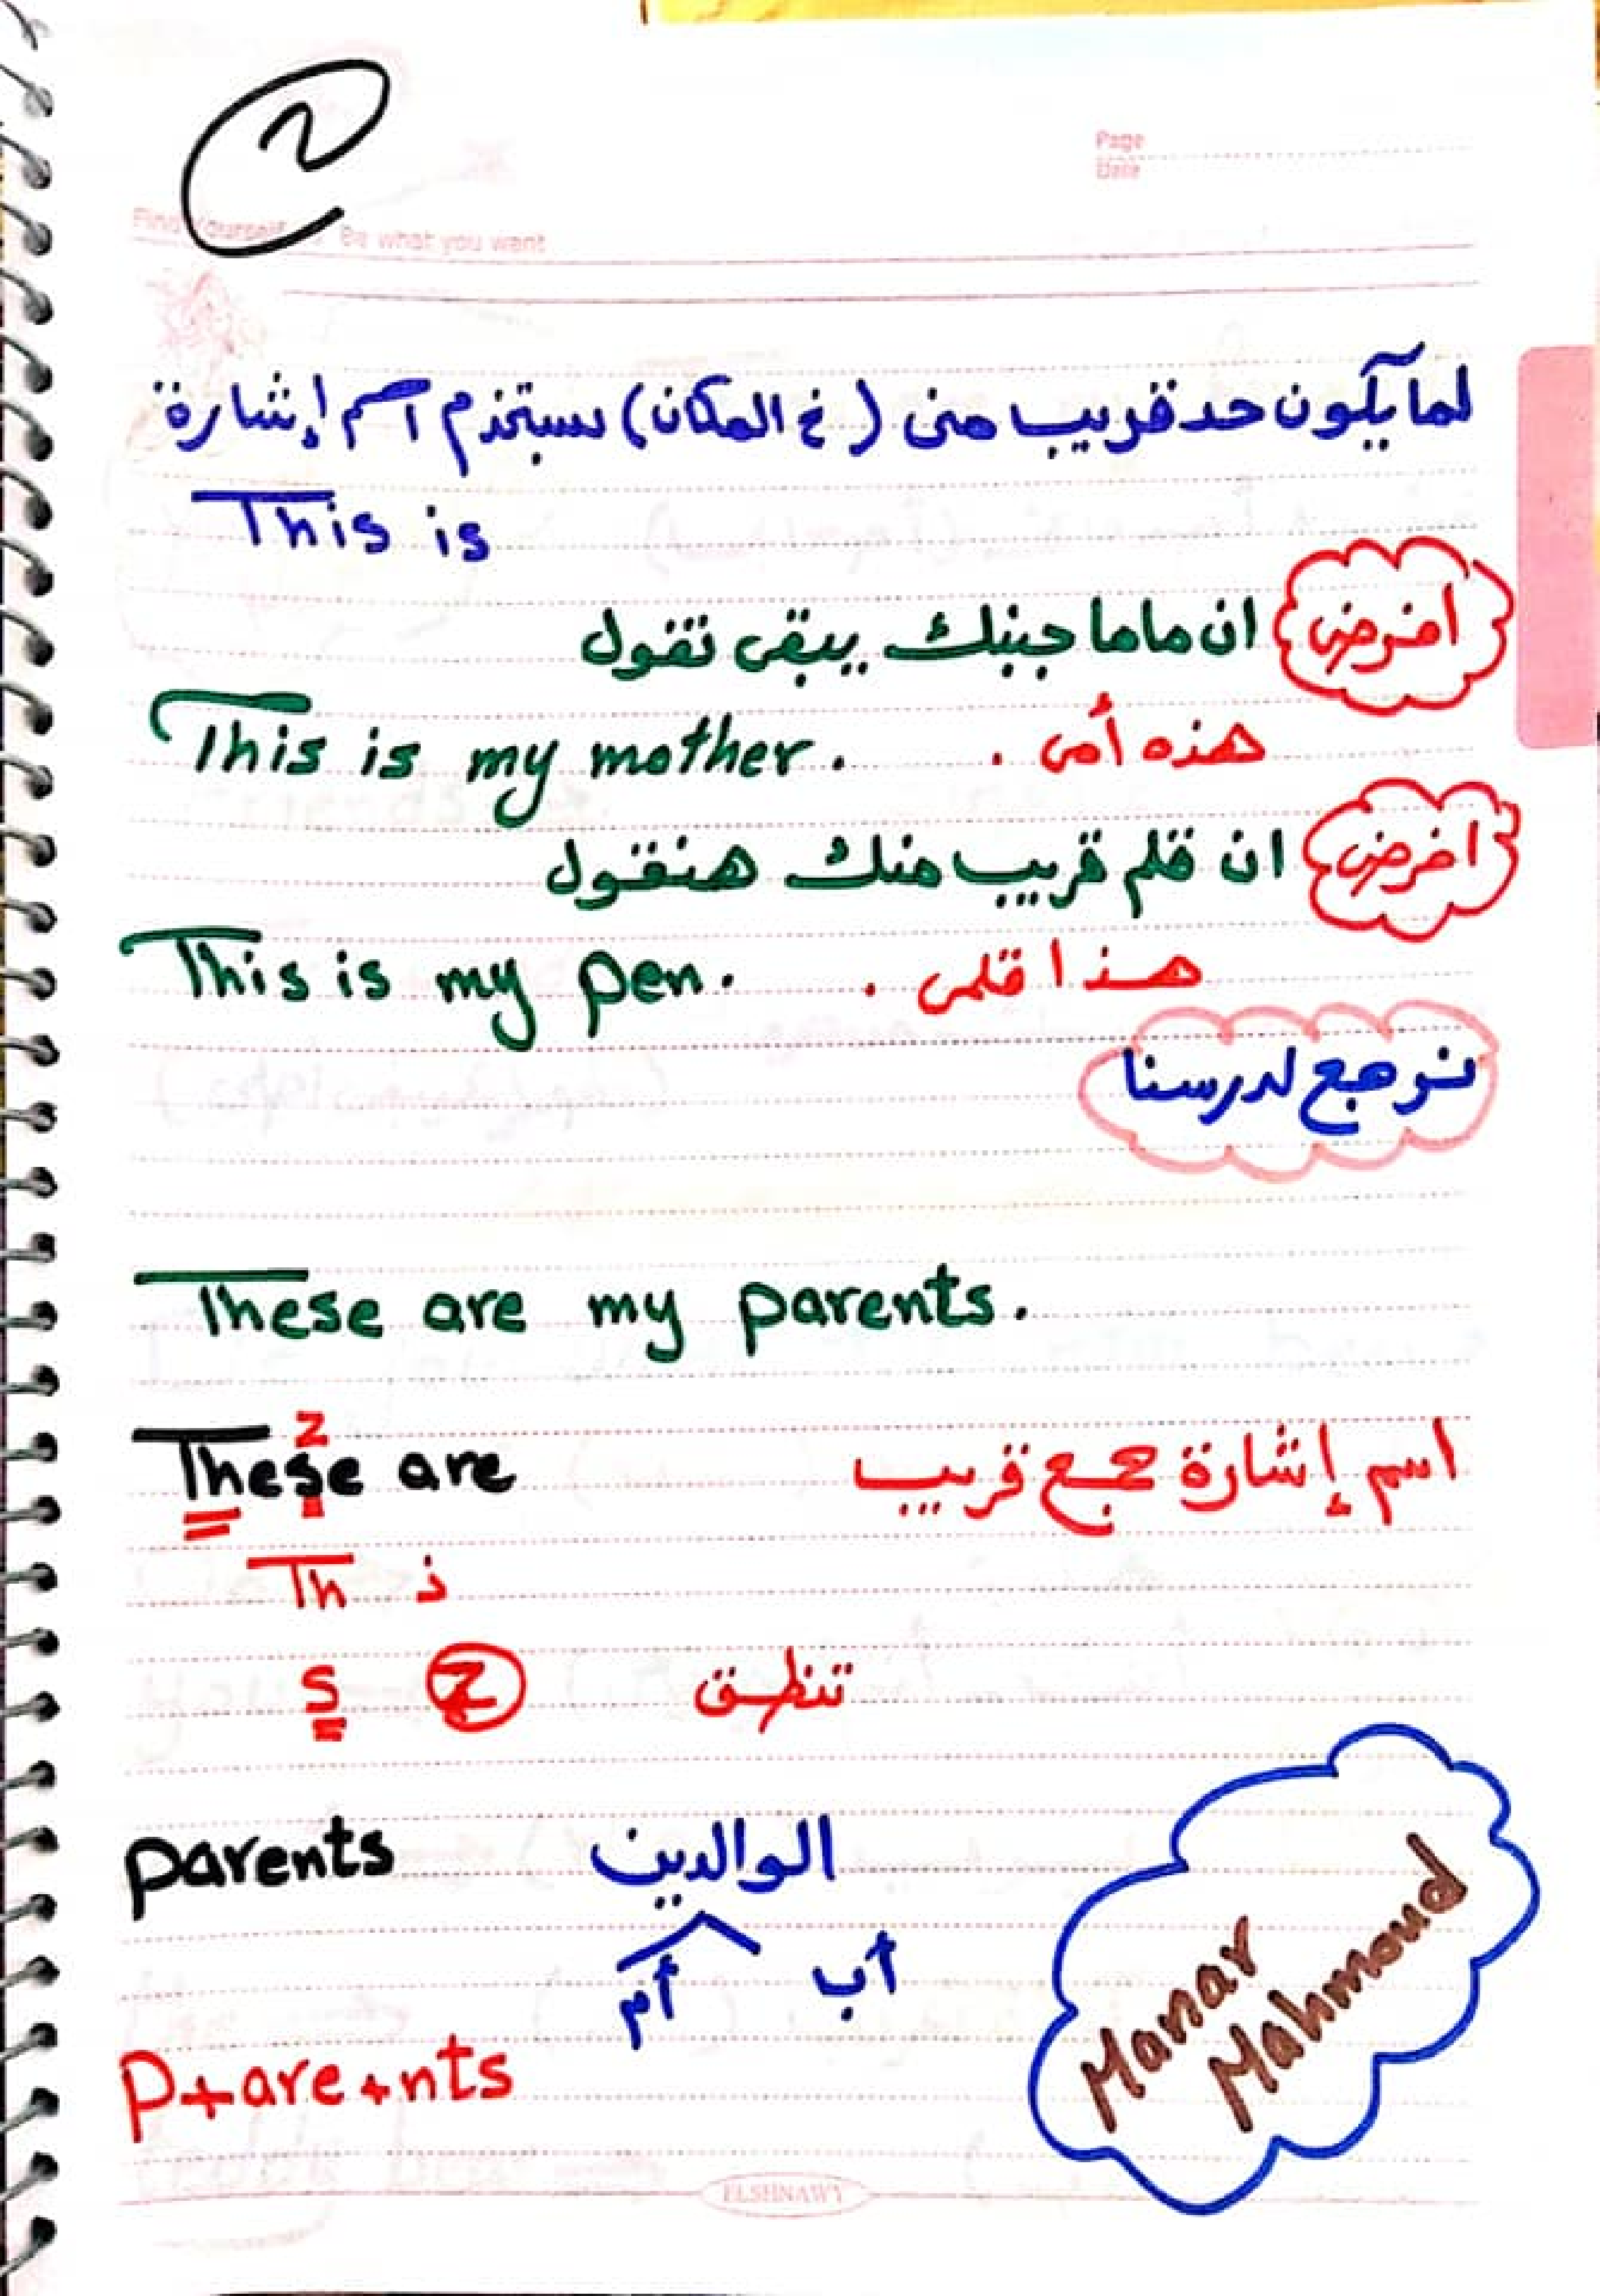 2
Page
Date
Find Yourself Be what you want
لما يكون حد قريب منى (في المكان) بستخدم اسم إشارة
This is
افرض ان ماما جنبك يبقى تقول
This is my mother. هذه أمى .
افرض ان قلم قريب منك هنقول
This is my pen. هذا قلمى .
نرجع لدرسنا
These are my parents.
z
These are اسم إشارة جمع قريب
Th ذ
s z تنطق
parents الوالدين
أب أم
P+are+nts
Manar
Mahmoud
ELSHNAWY